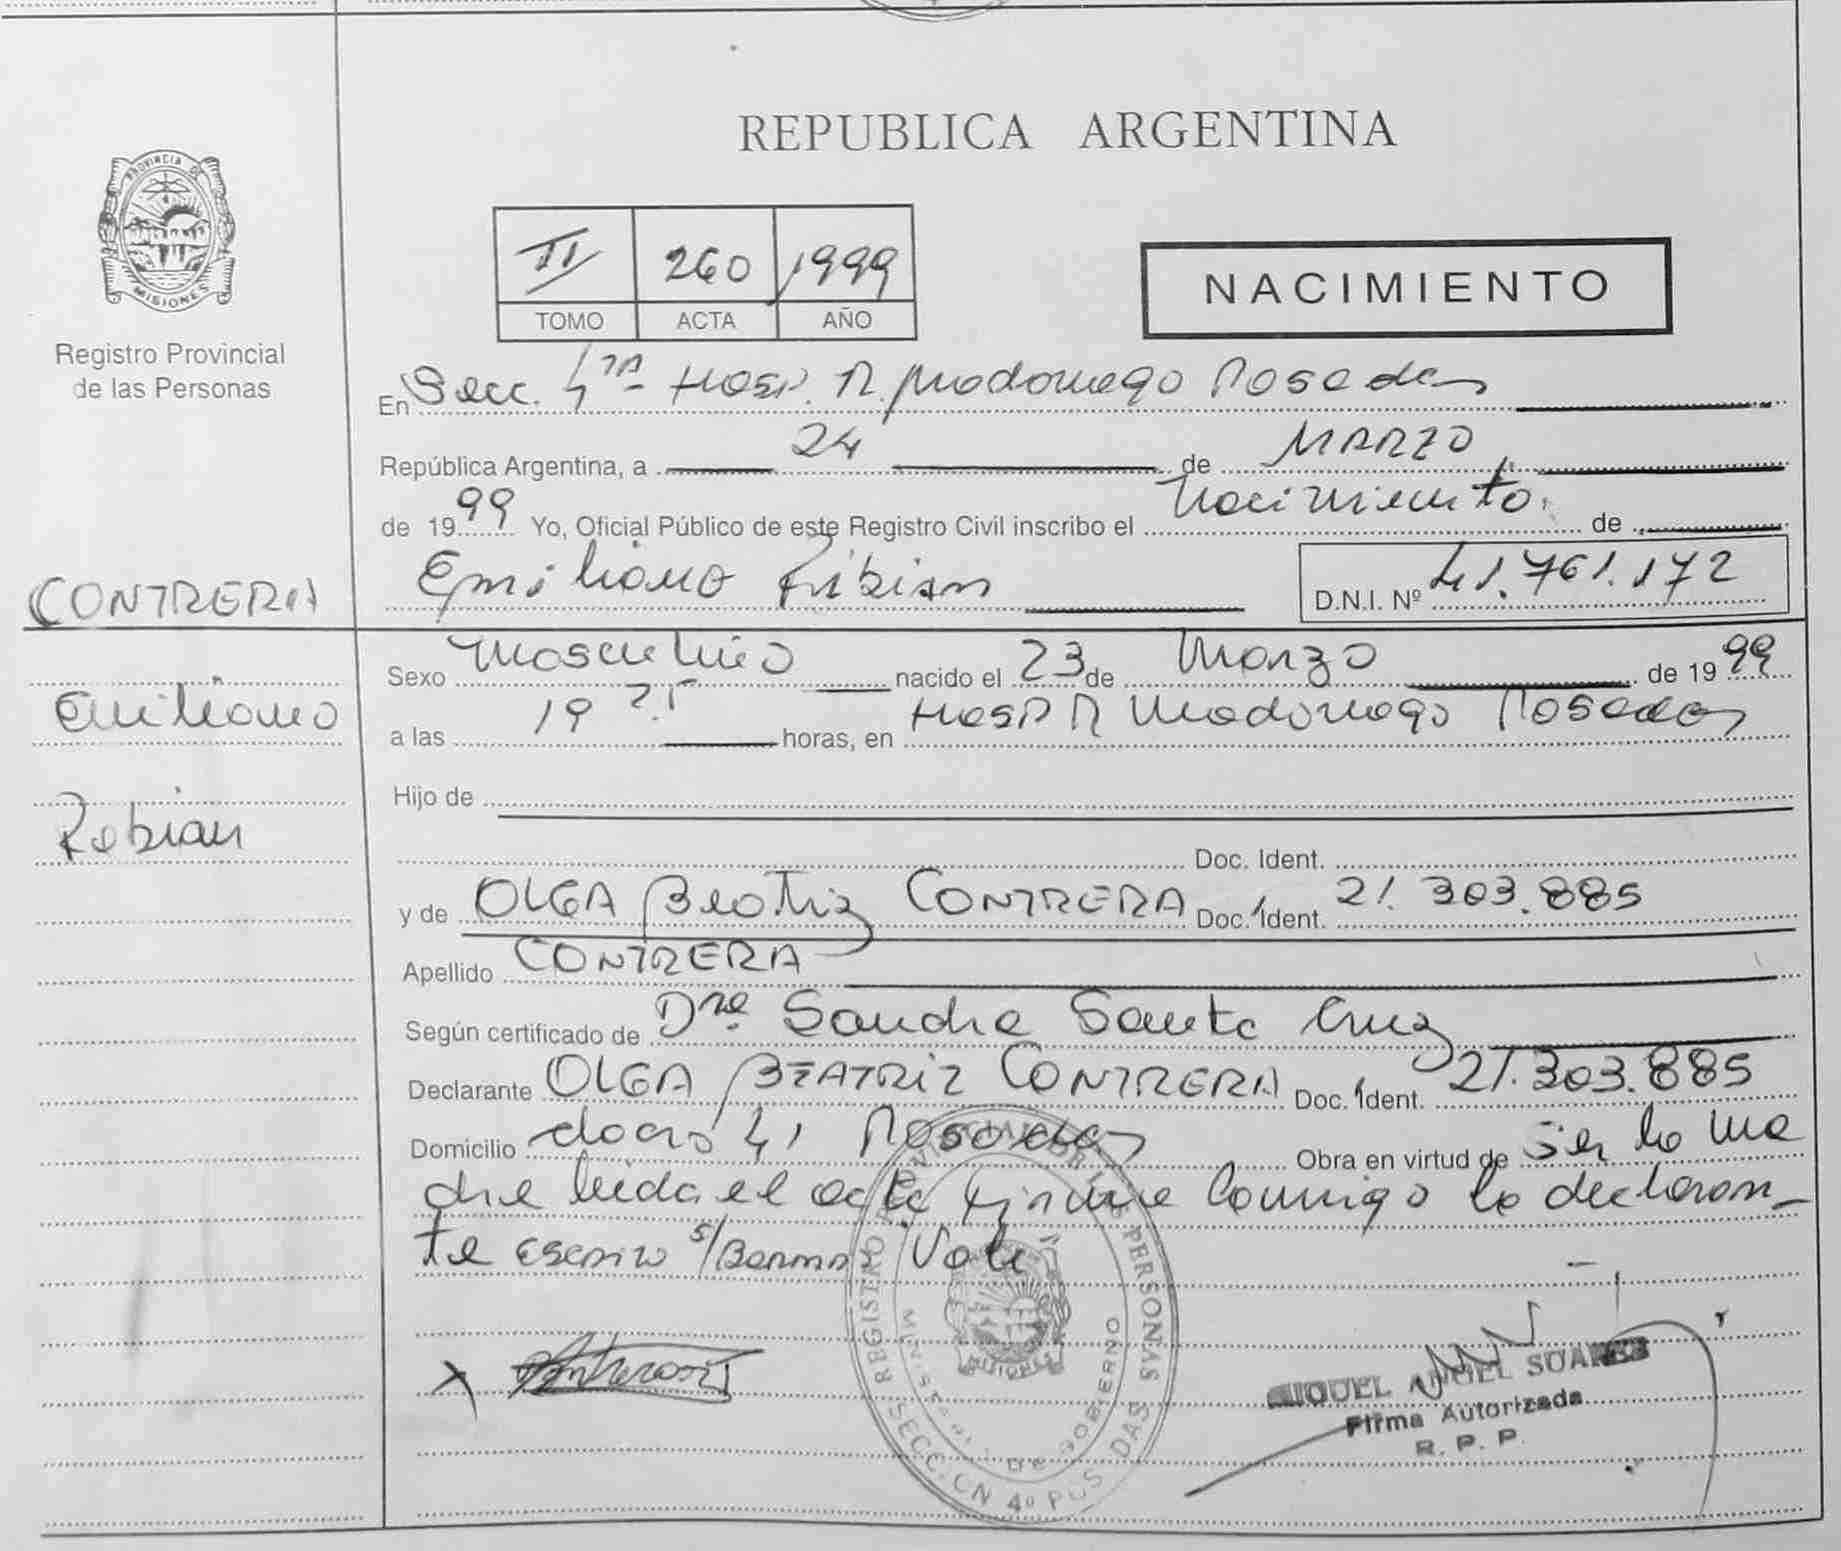 REPUBLICA ARGENTINA
PROVINCIA DE
MISIONES
Registro Provincial
de las Personas
II 260 1999
TOMO ACTA AÑO
NACIMIENTO
En Secc. 4ta Hosp. R. Madariaga Posadas
República Argentina, a 24 de MARZO
de 1999 Yo, Oficial Público de este Registro Civil inscribo el Nacimiento de
CONTRERA
Emiliano D.N.I. Nº 41.761.172
Sexo Masculino nacido el 23 de Marzo de 1999
Emiliano
a las 19 horas, en Hosp R Madariaga Posadas
Hijo de
Doc. Ident.
y de OLGA Beatriz CONTRERA Doc. Ident. 21.303.885
Apellido CONTRERA
Según certificado de Dra. Sandra Santa Cruz
Declarante OLGA BEATRIZ CONTRERA Doc. Ident. 21.303.885
Domicilio 41 Posadas Obra en virtud de ser la ma
dre leida el acta firma conmigo la declaran-
te Vale
REGISTRO PROVINCIAL DE LAS PERSONAS
SECCION 4º POSADAS
MINISTERIO DE GOBIERNO
MISIONES
MIGUEL ANGEL SUAREZ
Firma Autorizada
R. P. P.